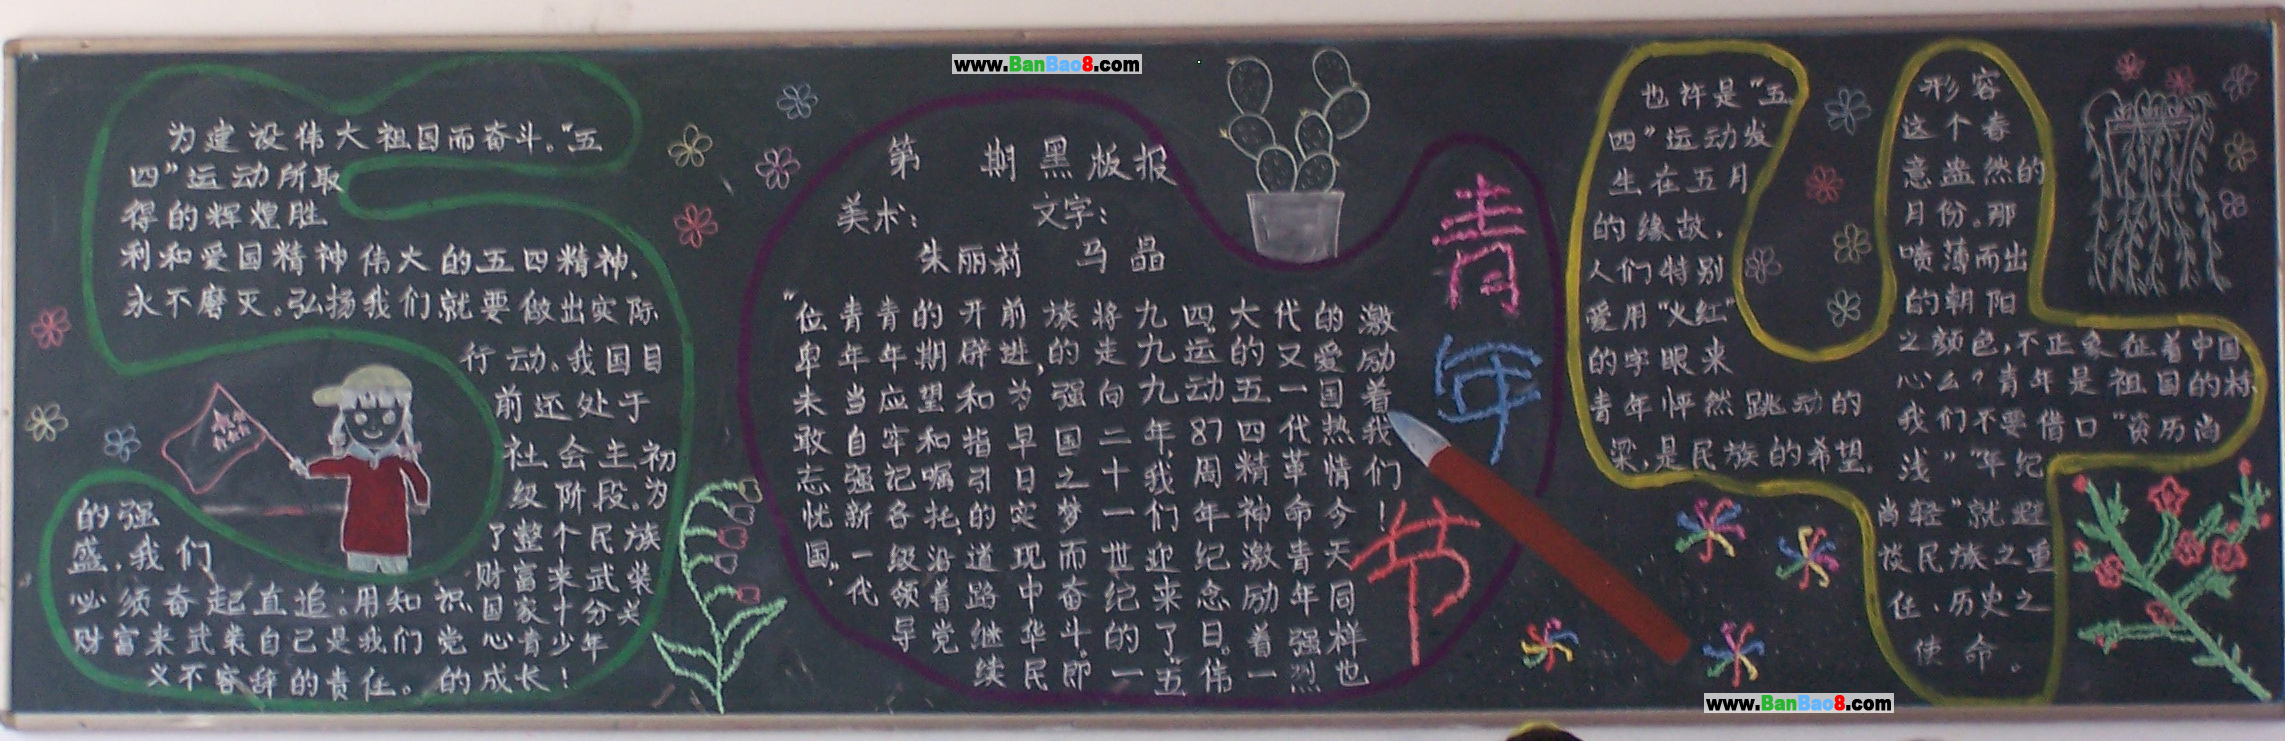 www.BanBao8.com
为建设伟大祖国而奋斗。“五
四”运动所取
得的辉煌胜
利和爱国精神伟大的五四精神，
永不磨灭。弘扬我们就要做出实际
行动。我国目
前还处于
社会主初
级阶段。为
了整个民族
财富来武装
国家十分关
心青少年
的成长！
的强
盛，我们
必须奋起直追。用知识
财富来武装自己是我们党
义不容辞的责任。
第 期黑板报
美术： 文字：
朱丽莉 马晶
“位卑未敢忘忧国”，
青年当自强新一代
青年应牢记各级领导
的期望和嘱托，沿着党
开辟和指引的道路继续
前进，为早日实现中华民
族的强国之梦而奋斗。即
将走向二十一世纪的一
九九九年，我们迎来了“五
四”运动87周年纪念日。伟
大的五四精神激励着一
代又一代革命青年强烈
的爱国热情今天同样也
激励着我们！
青年节
也许是“五
四”运动发
生在五月
的缘故，
人们特别
爱用“火红”
的字眼来
形容
这个春
意盎然的
月份。那
喷薄而出
的朝阳
之颜色，不正象征着中国
青年怦然跳动的
心么？青年是祖国的栋
梁，是民族的希望，
我们不要借口“资历尚
浅”“年纪
尚轻”就避
谈民族之重
任、历史之
使命。
www.BanBao8.com